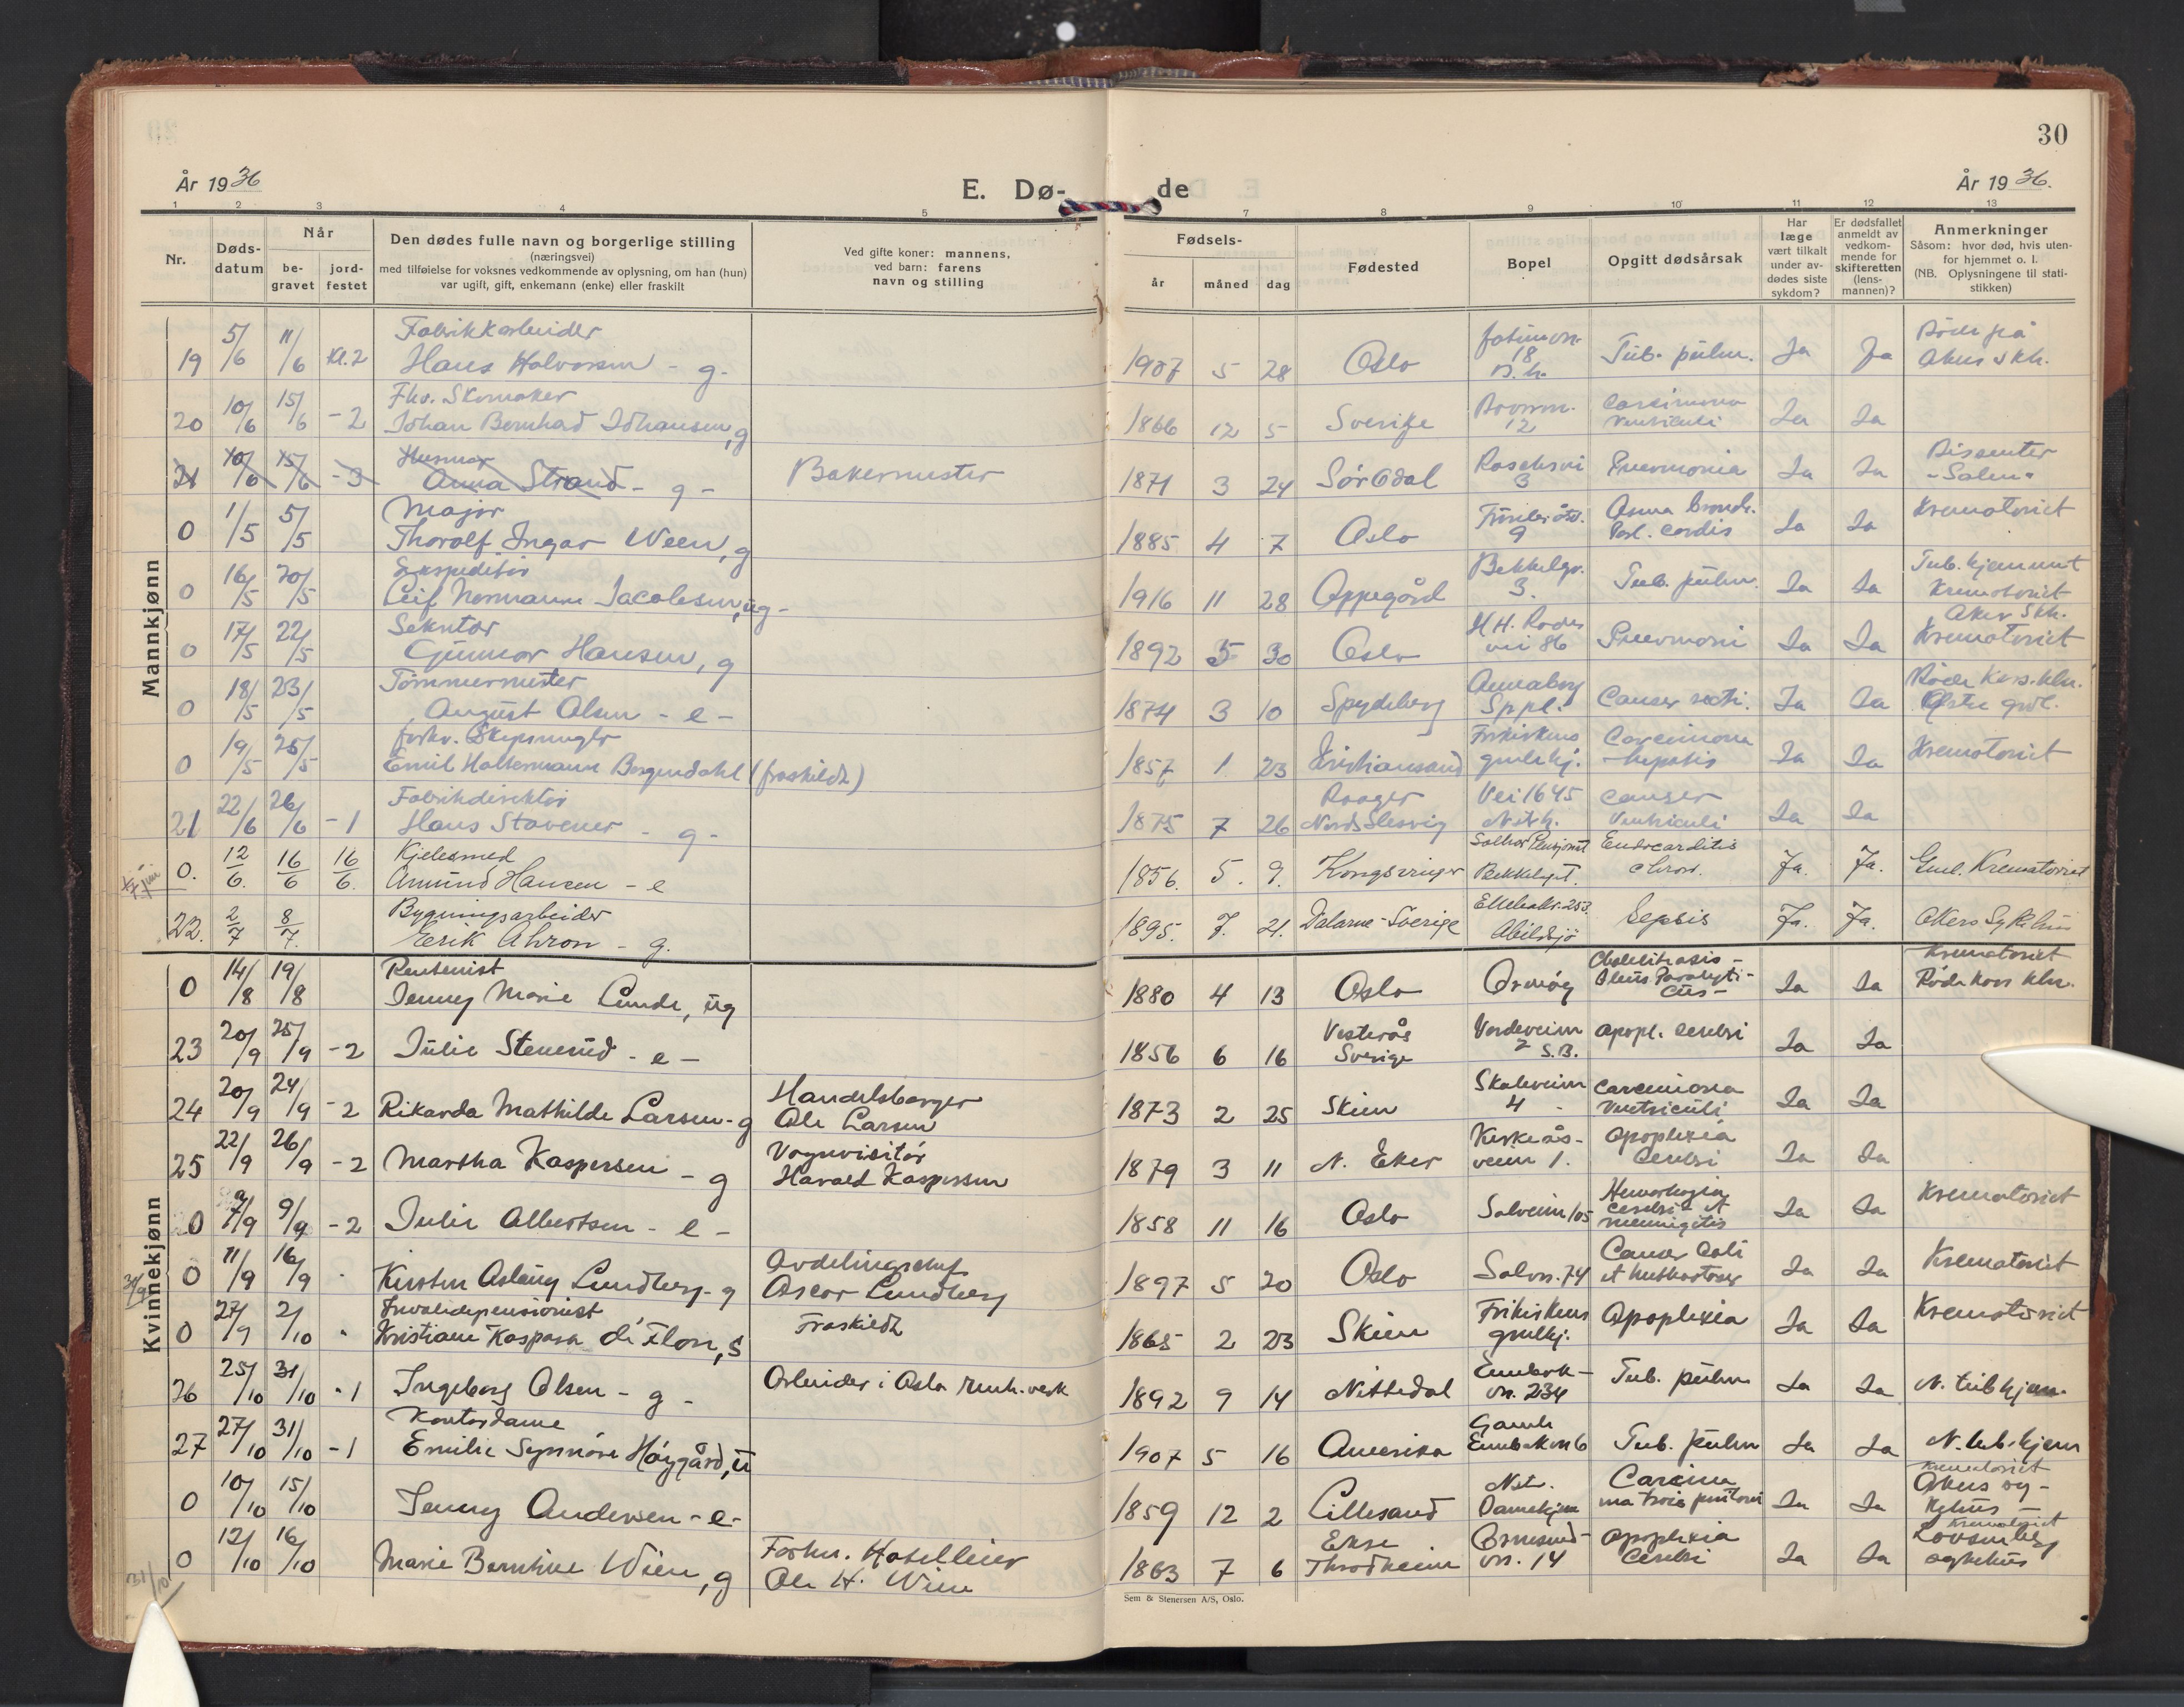 30
År 1936
E. Dø-
de
År 1936.
1 2 3 4 5 7 8 9 10 11 12 13
Nr.
Døds-
datum
Når
be-
gravet
jord-
festet
Den dødes fulle navn og borgerlige stilling
(næringsvei)
med tilføielse for voksnes vedkommende av oplysning, om han (hun)
var ugift, gift, enkemann (enke) eller fraskilt
Ved gifte koner: mannens,
ved barn: farens
navn og stilling
Fødsels-
år måned dag
Fødested
Bopel
Opgitt dødsårsak
Har
læge
vært tilkalt
under av-
dødes siste
sykdom?
Er dødsfallet
anmeldt av
vedkom-
mende for
skifteretten
(lens-
mannen)?
Anmerkninger
Såsom: hvor død, hvis uten-
for hjemmet o. l.
(NB. Oplysningene til stati-
stikken)
Mannkjønn
Fabrikkarbeider
19 5/6 11/6 Kl. 2 Hans Halvorsen - g - 1907 5 28 Oslo 18 Tub. pulm. Ja Ja
Fhv. Skomaker
20 10/6 15/6 - 2 Johan Bernhad Johansen, g 1866 12 5 Sverige 12 Carcinoma Ventriculi Ja Ja
Husmor
21 10/6 15/6 - 3 Anna Strand - g - Bakermester 1871 3 24 Sør Odal 3 Pneumonia Ja Ja Dissenter
"Salem"
Major
0 1/5 5/5 Thorolf Ingar Ween, g 1885 4 7 Oslo 9 Ja Ja Krematoriet
Ekspeditør
0 16/5 20/5 Leif Normann Jacobsen, ug - 1916 11 28 Oppegård Bekkelgv. 3. Tub. pulm. Ja Ja Tub. hjemmet
Krematoriet
Sekretær
0 17/5 22/5 Gunnar Hansen, g 1892 5 30 Oslo vei 86 Pneumoni Ja Ja Aker Skh.
Krematoriet
Tømmermester
0 18/5 23/5 August Olsen - e - 1874 3 10 Spydeberg Cancer recti. Ja Ja Røde Kors. klin.
Østre grvl.
forhv.
0 19/5 25/5 Emil Bergendahl (fraskildt) 1857 1 23 Kristiansand Carcinoma hepatis Ja Ja Krematoriet
Fabrikdirektør
21 22/6 26/6 - 1 Hans Stavener - g - 1875 7 26 Nord Slesvig Vei 1645 Cancer Ventriculi Ja Ja
Kjelesmed
0. 12/6. 16/6 16/6. Amund Hansen - e 1856. 5. 9. Kongsvinger Bekkelaget. Endocarditis chron. Ja. Ja. Gml. Krematoriet
Bygningsarbeider
22. 2/7 8/7. Eerik Ahron - g. 1895. 7. 21. Dalarne - Sverige Abildsjø Sepsis Ja. Ja. Akers Sykehus
Kvinnekjønn
Rentenist
0 14/8 19/8 Jenny Marie Lunde, ug 1880 4 13 Oslo Ormøy Ja Ja Krematoriet
Røde Kors klin.
23 20/9 25/9 - 2 Julie Stenerud - e - 1856 6 16 Vesterås Sverige Vardeveien 2 S.B. Apopl. cerebri Ja Ja
24 20/9 24/9 - 2 Rikarda Mathilde Larsen - g Ole Larsen 1873 2 25 Skien 4 Carcinoma Ventriculi Ja Ja
25 22/9 26/9 - 2 Martha Kaspersen - g Vognvisitør
Harald Kaspersen 1879 3 11 N. Eker Kirkeås-
veien 1. Apoplexia Cerebri Ja Ja
0 9/9 - 2 Julie Albertsen - e - 1858 11 16 Oslo Solveien 105 Ja Ja Krematoriet
0 11/9 16/9 Kirsten Aslaug Lundberg - g Avdelingschef
Oscar Lundberg 1897 5 20 Oslo Solvn. 74 Cancer Coli Ja Ja Krematoriet
Invalidepensionist
0 27/9 2/10 Kristiane Kaspara de Flon, s Fraskildt 1865 2 23 Skien Apoplexia Ja Ja Krematoriet
26 25/10 31/10 - 1 Ingeborg Olsen - g - Arbeider i Oslo renh. verk 1892 9 14 Nittedal vn. 234 Tub. pulm Ja Ja N. tub hjem.
Kontordame
27 27/10 31/10 - 1 Emilie Synnøve Høygård, u 1907 5 16 Amerika Gamle Tub. pulm Ja Ja N. tub. hjem
0 10/10 15/10 Jenny Andersen - e - 1859 12 2 Lillesand Ja Ja Krematoriet
0 12/10 16/10 Marie Bernhine Wien, g Forhv. Hotelleier
Ole H. Wien 1863 7 6 Ormsund-
vn. 14 Apoplexia Cerebri Ja Ja Krematoriet
Lovisenberg
sykehus
31/10
Sem & Stenersen A/S, Oslo.